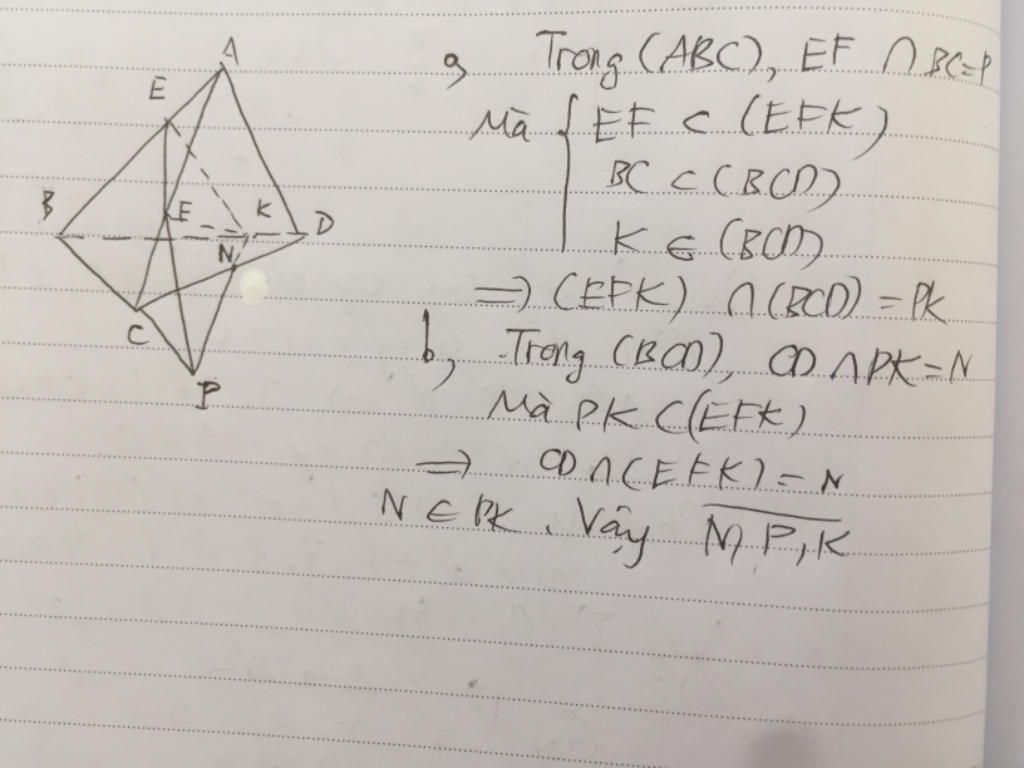 A
E
B
E
K
D
N
C
P
a, Trong (ABC), EF ∩ BC=P
Mà { EF ⊂ (EFK)
BC ⊂ (BCD)
K ∈ (BCD)
=> (EFK) ∩ (BCD) = PK
b, Trong (BCD), CD ∩ PK = N
Mà PK ⊂ (EFK)
=> CD ∩ (EFK) = N
N ∈ PK. Vậy N, P, K